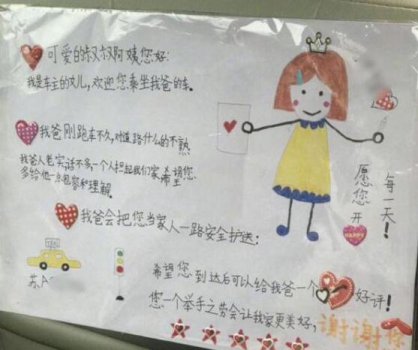 可爱的叔叔阿姨您好:
我是车主的女儿,欢迎您乘坐我爸的车。
我爸刚跑车不久,对道路什么的不熟
我爸人老实,话不多,一个人担起我们家,希望您
多给他一点包容和理解。
我爸会把您当家人一路安全护送;
希望您到达后可以给我爸一个好评!
您一个举手之劳会让我家更美好,谢谢你
愿您
开
HAPPY
每一天!
苏A